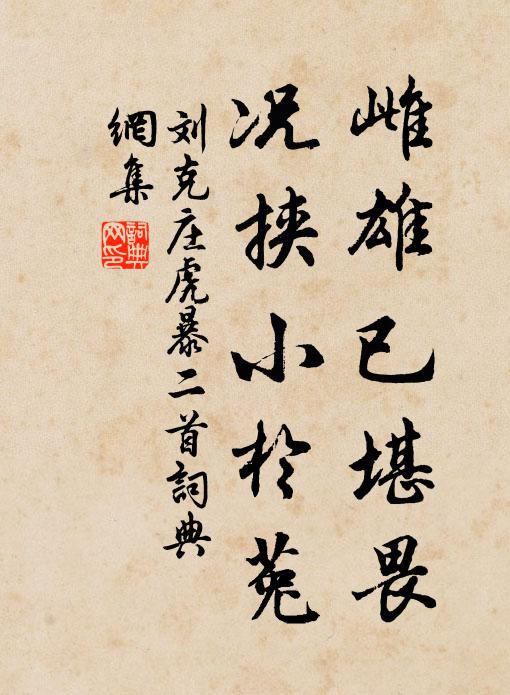 雌雄已堪畏
况挟小於菟
刘克庄虎暴二首詞典
網集
詞典
网印